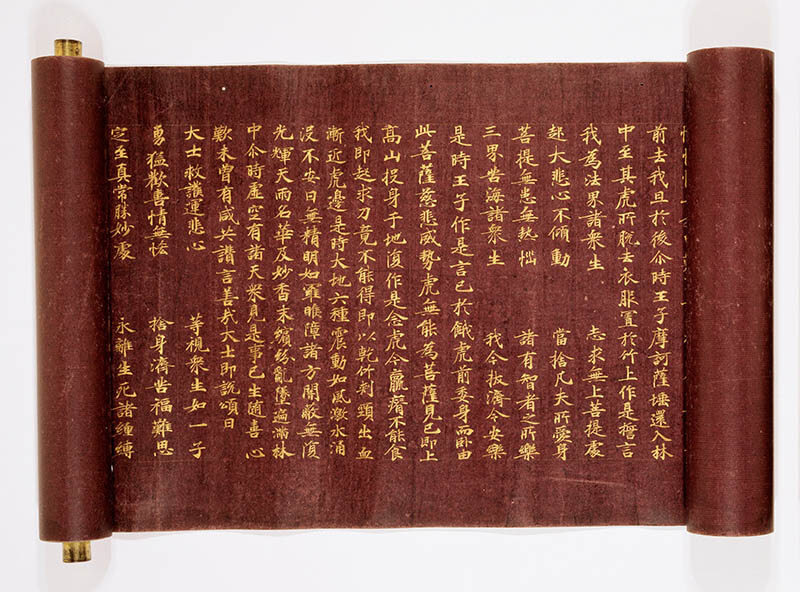 前去我且於後尒時王子摩訶薩埵還入林
中至其虎所脫去衣服置於竹上作是誓言
我為法界諸衆生　志求無上菩提處
起大悲心不傾動　當捨凡夫所愛身
菩提無患無熱惱　諸有智者之所樂
三界苦海諸衆生　我今拔濟令安樂
是時王子作是言已於餓虎前委身而卧由
此菩薩慈悲威勢虎無能為菩薩見已即上
高山投身于地復作是念虎今羸瘠不能食
我即起求刀竟不能得即以乾竹刺頸出血
漸近虎邊是時大地六種震動如風激水涌
沒不安日無精明如羅睺障諸方闇蔽無復
光輝天雨名華及妙香末繽紛亂墜遍滿林
中尒時虛空有諸天衆見是事已生隨喜心
歎未曾有咸共讚言善哉大士即說頌曰
大士救護運悲心　等視衆生如一子
勇猛歡喜情無悋　捨身濟苦福難思
定至真常勝妙處　永離生死諸纏縛